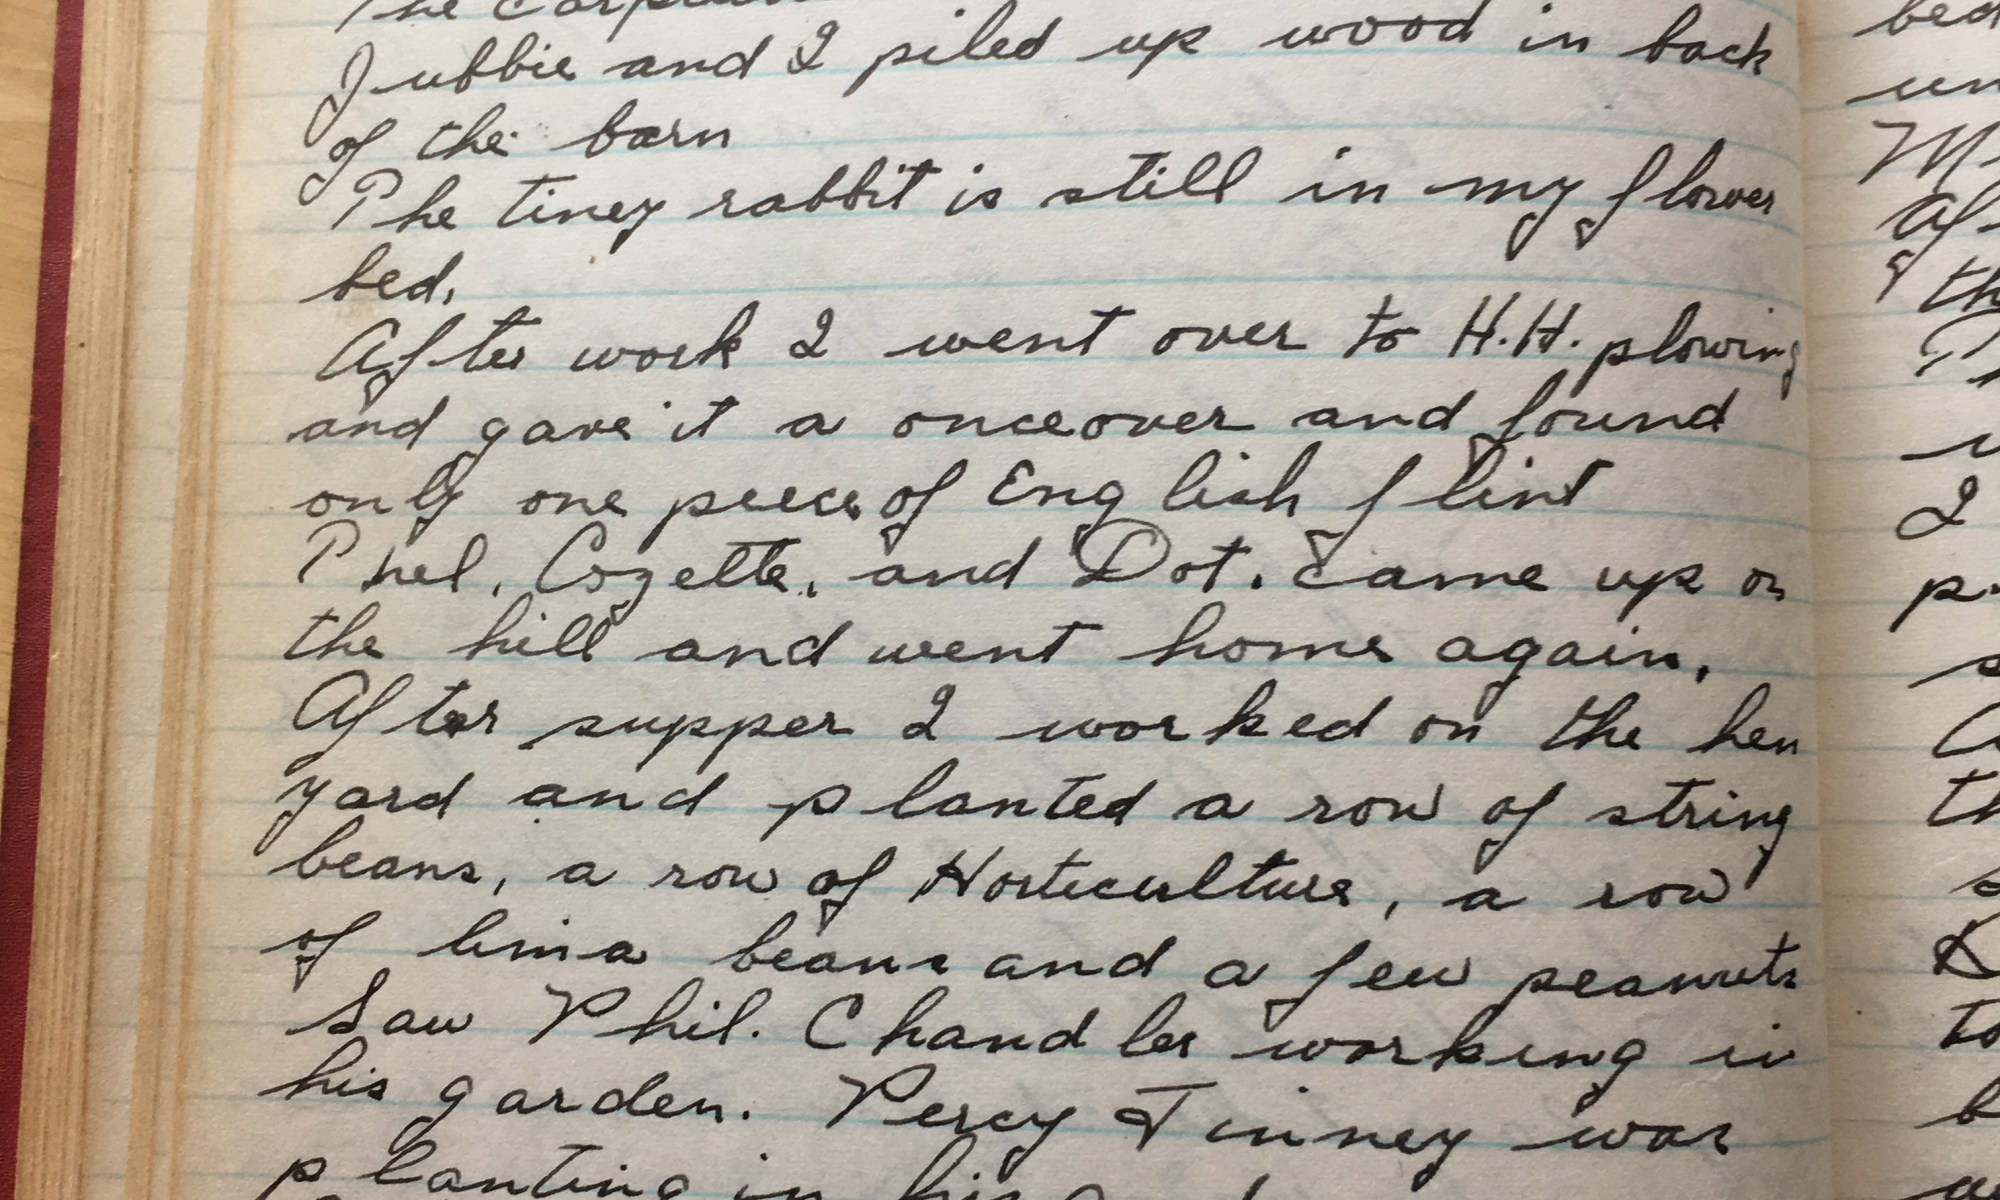 The
Jubbie and I piled up wood in back
of the barn
The tiney rabbit is still in my flower
bed.
After work I went over to H.H. plowing
and gave it a onceover and found
only one peece of English flint
Phel, Cozette, and Dot. came up on
the hill and went home again.
After supper I worked on the hen
yard and planted a row of string
beans, a row of Horticulture, a row
of lima beans and a few peanuts
Saw Phil. Chandler working in
his garden. Percy Tinney was
planting in his